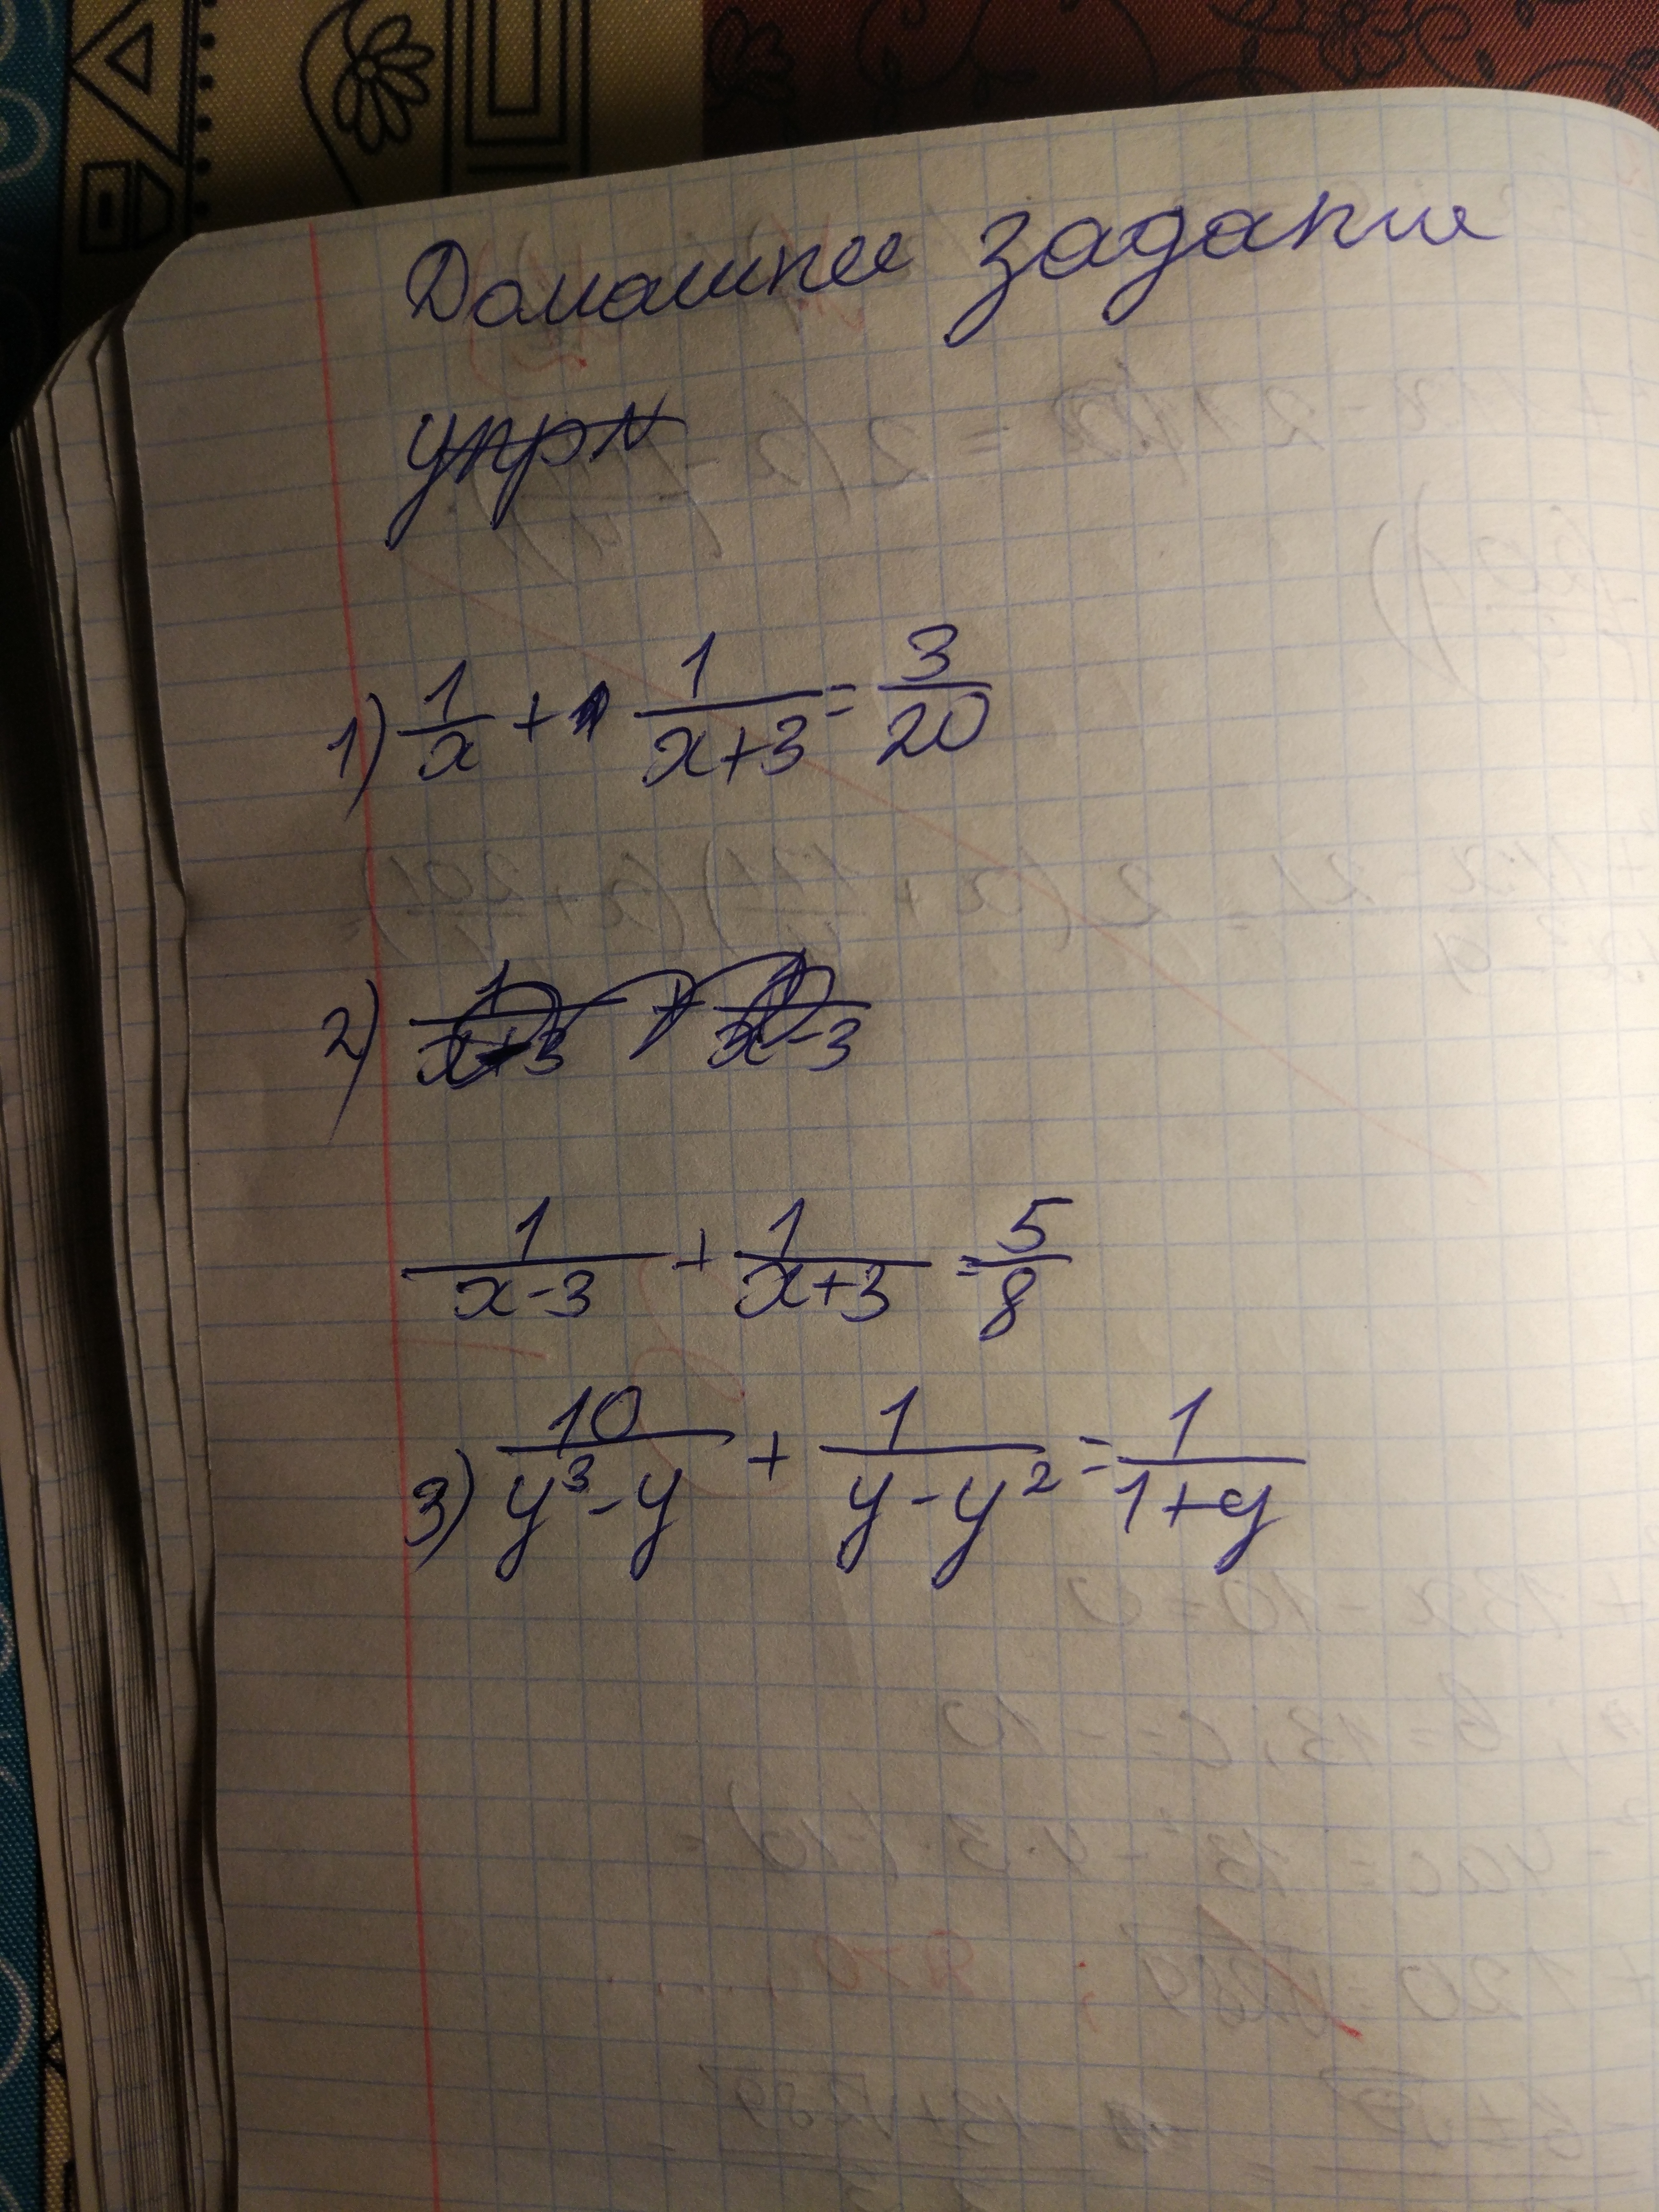 Домашнее задание
упр №
1) 1/x + 1/(x+3) = 3/20
2) 1/(x+3) + 1/(x-3)
1/(x-3) + 1/(x+3) = 5/8
3) 10/(y³-y) + 1/(y-y²) = 1/(1+y)